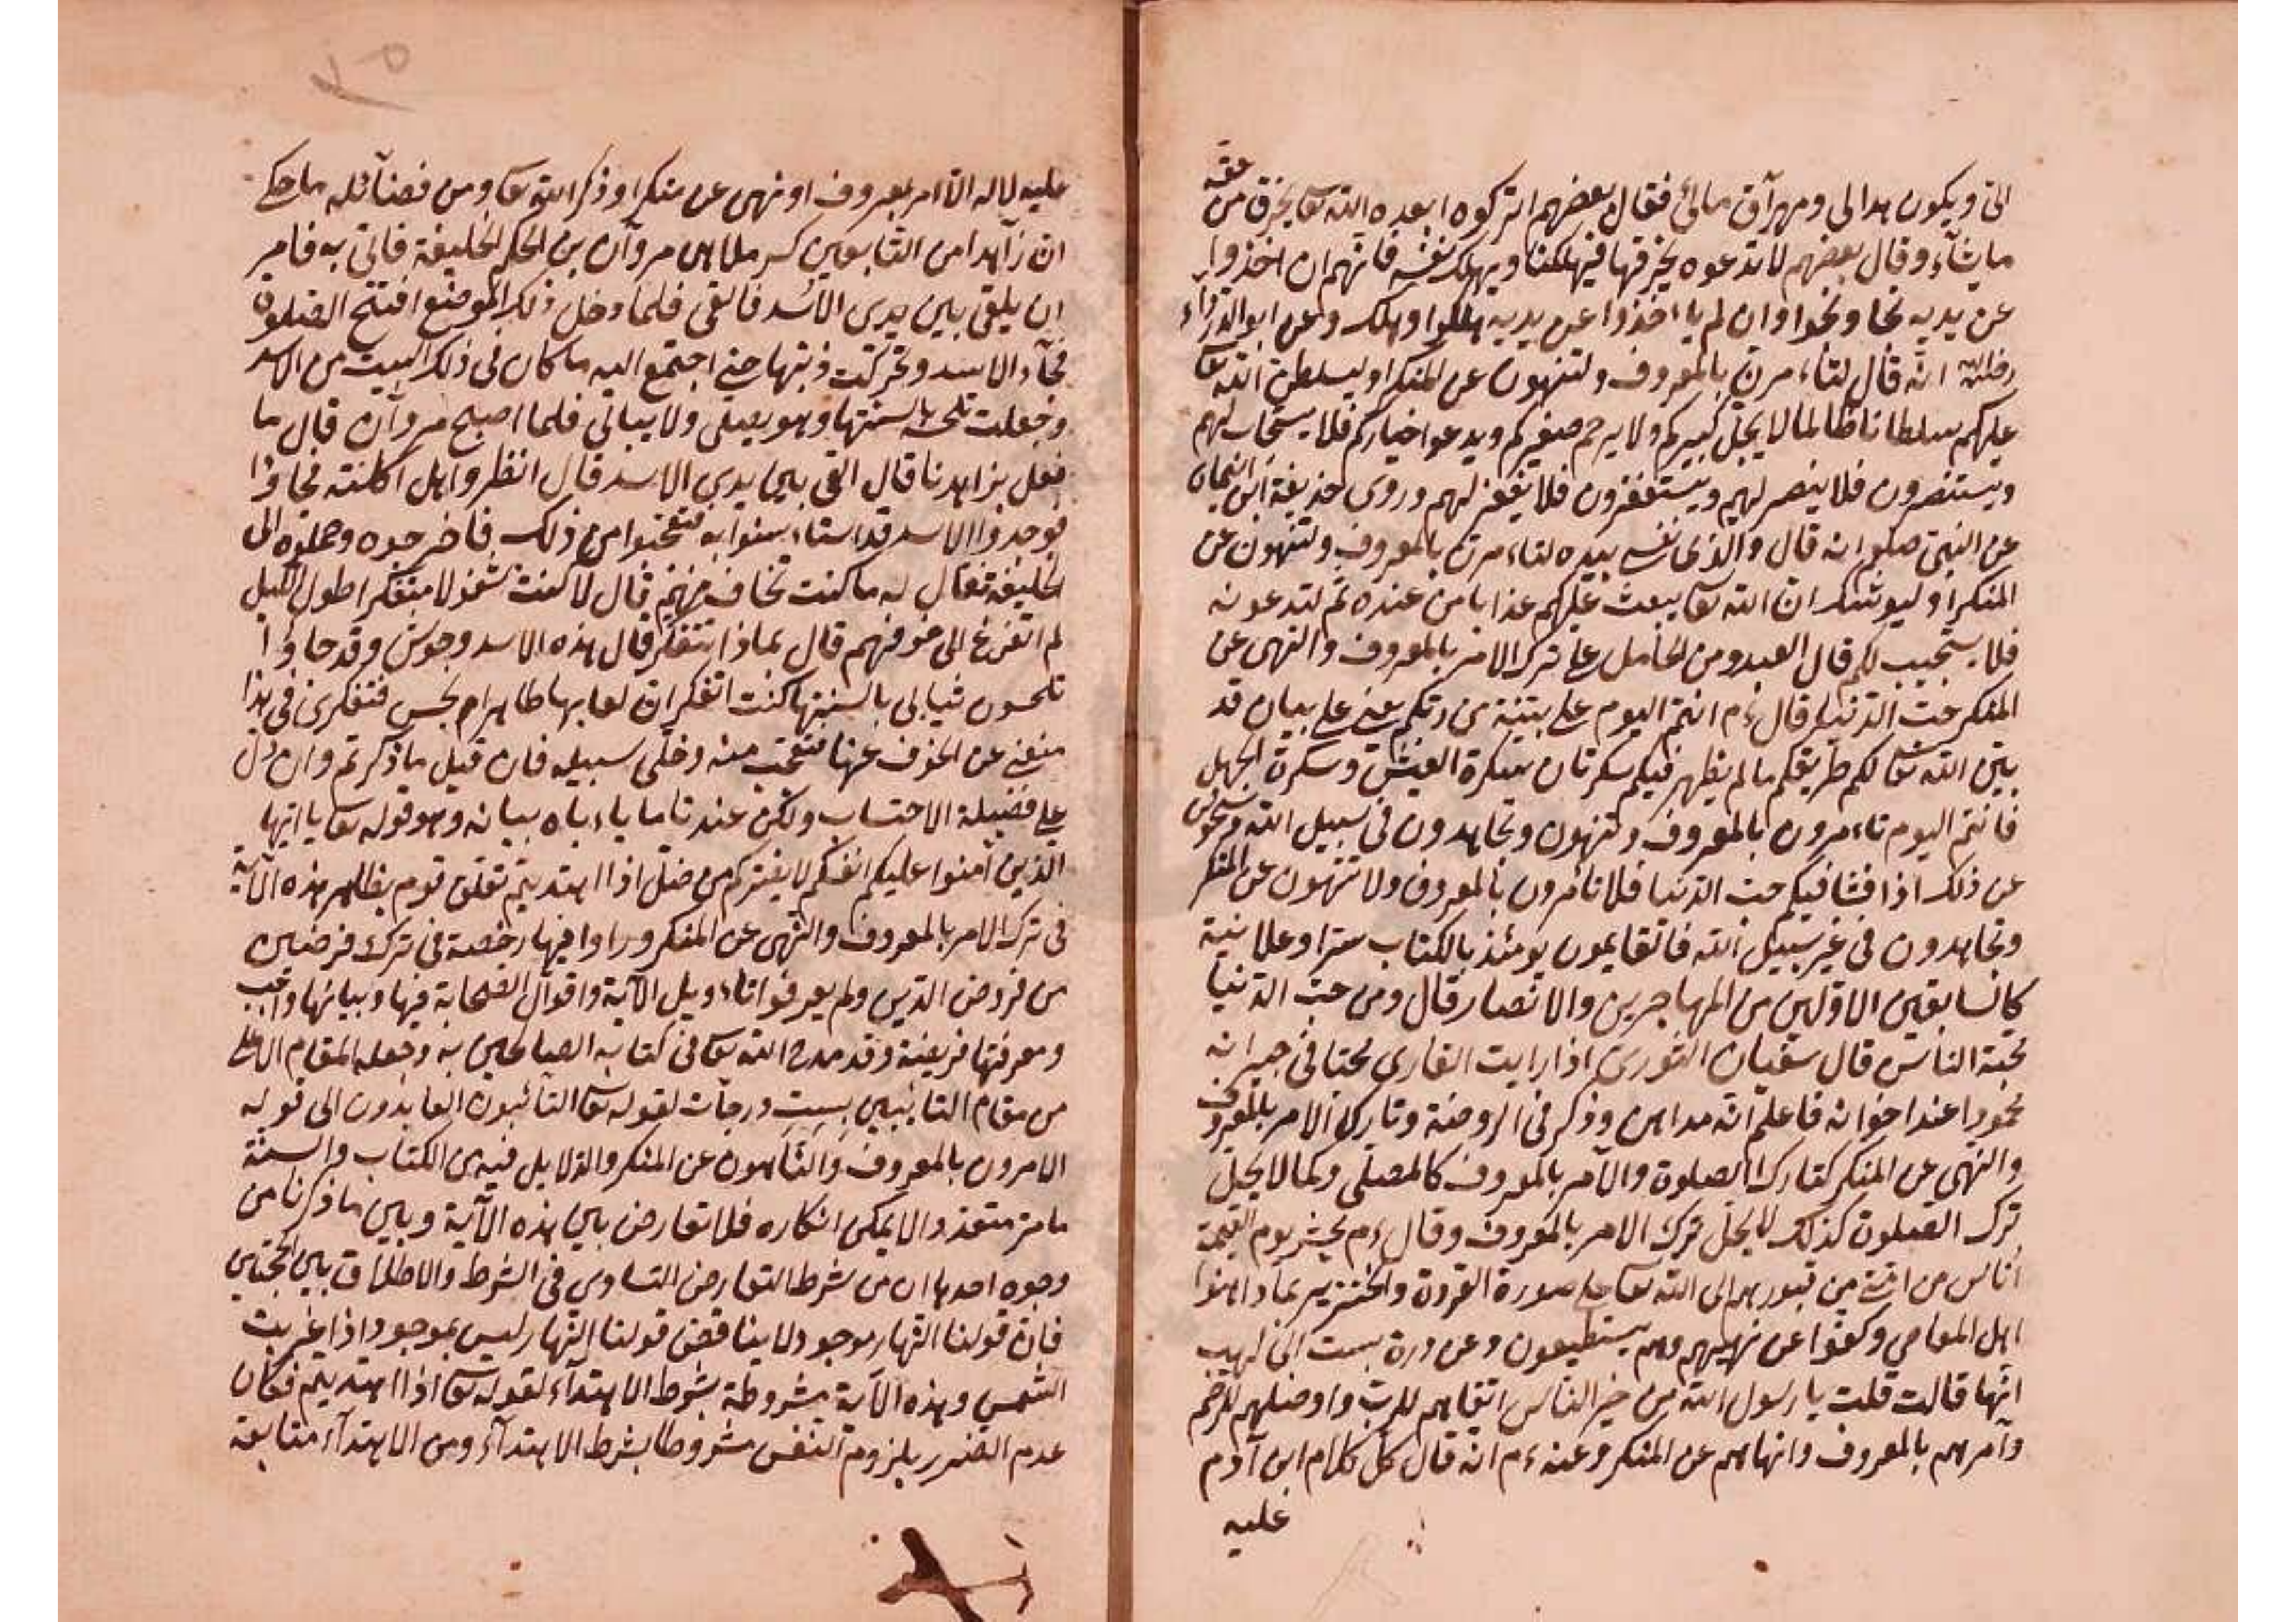 حقه
الىّ ويكون بدالى ومهرآق مائى فقال بعضهم اتركوه ابعده الله تعا يخرق من
ما يشاء وقال بعضهم لا تدعوه يخرقها فيهلكنا ويهلك نفسه فانهم ان اخذوا
عن يديه نجا ونجوا وان لم ياءخذوا عن يديه هلكوا وهلك وعن ابو الدرداء
رضى الله انه قال لتاءمرن بالمعروف ولتنهون عن المنكر او ليسلطن الله تعا
عليكم سلطانا ظالما لا يجلّ كبيركم ولا يرحم صغيركم ويدعو اخياركم فلا يستجاب لهم
ويستنصرون فلا ينصر لهم ويستغفرون فلا يغفر لهم وروى حذيفة ابن اليمان
عن النبىّ صلعم انه قال والذى نفسى بيده لتاءمرن بالمعروف ولتنهون عن
المنكر او ليوشكن ان الله تعا يبعث عليكم عذابا من عنده ثم لتدعونه
فلا يستجيب لكم قال العبد ومن الحامل على ترك الامر بالمعروف والنهى عن
المنكر حبّ الدنيا قال ءم انتم اليوم على بيّنة من ربّكم يعنى على بيان قد
بيّن الله تعا لكم طريقكم ما لم يظهر فيكم سكرتان سكرة العيش وسكرة الجهل
فانتم اليوم تاءمرون بالمعروف وتنهون وتجاهدون فى سبيل الله وستحولون
عن ذلك اذا فشا فيكم حبّ الدنيا فلا تامرون بالمعروف ولا تنهون عن المنكر
وتجاهدون فى غير سبيل الله فالقايمون يومئذ بالكتاب سرّا وعلانية
كالسابقين الاوّلين من المهاجرين والانصار قال ومن حبّ الدنيا
محبّة الناس قال سفيان الثورى اذا رايت القارى محبّا فى جيرانه
محمودا عند اخوانه فاعلم انّه مداهن وذكر فى الروضة وتارك الامر بالمعروف
والنهى عن المنكر كتارك الصلوة والآمر بالمعروف كالمصلّى وكما لا يحلّ
ترك الصلوة كذلك لا يحلّ ترك الامر بالمعروف وقال ءم يحشر يوم القيمة
اناس من امّتى من قبورهم الى الله تعا على صورة القردة والخنزير بما داهنوا
اهل المعاصى وكفّوا عن نهيهم وهم يستطيعون وعن درة بنت ابى لهب
انّها قالت قلت يا رسول الله من خير الناس اتقاهم للربّ واوصلهم للرحم
وآمرهم بالمعروف وانهاهم عن المنكر وعنه ءم انه قال كلّ كلام ابن آدم
عليه
عليه لا له الّا امر بمعروف او نهى عن منكر او ذكر الله تعا ومن فضآئله ما حكى
ان زآهدا من التابعين كسر ملاهى مروآن بن الحكم الخليفة فاتى به فامر
ان يلقى بين يدى الاسد فالقى فلما دخل ذلك الموضع افتتح الصلوة
فجآء الاسد وتحركت ذنبها حتى اجتمع اليه ما كان فى ذلك البيت من الاسد
وجعلت تلحسه بالسنتها وهو يصلى ولا يبالى فلما اصبح مروآن قال ما
فعل بزاهدنا قال القى بين يدى الاسد قال انظروا هل اكلته فجاؤا
فوجدوا الاسد قد استاءنسوا به فتعجّبوا من ذلك فاخرجوه وحملوه الى
الخليفة فقال له ما كنت تخاف منهم قال لا كنت مشغولا متفكرا طول الليل
لم اتفرغ الى خوفهم قال بماذا تتفكر قال هذه الاسد وحوش وقد جاؤا
تلحسون ثيابى بالسنتها كنت اتفكر ان لعابها طاهر ام نجس فتفكرى فى هذا
منعنى عن الخوف عنها فتعجّب منه وخلّى سبيله فان قيل ما ذكرتم وان دل
على فضيلة الاحتساب ولكن عندنا ما ياءباه بيانه وهو قوله تعا يا ايها
الّذين آمنوا عليكم انفسكم لا يضركم من ضلّ اذا اهتديتم تعلق قوم بظاهر هذه الآية
فى ترك الامر بالمعروف والنهى عن المنكر وراوا فيها رخصة فى ترك فرضين
من فروض الدين ولم يعرفوا تاءويل الآية واقوال الصحابة فيها وبيانها واجب
ومعرفتها فريضة وقد مدح الله تعا فى كتابه الصالحين به وجعله المقام الاعلى
من مقام التائبين بست درجات لقوله تعا التائبون العابدون الى قوله
الامرون بالمعروف والناهون عن المنكر والدلايل فيه من الكتاب والسنة
ما مرّ متعذ ولا يمكن انكاره فلا تعارض بين هذه الآية وبين ما ذكرنا من
وجوه احدها ان من شرط التعارض التساوى فى الشرط والاطلاق بين الحجّتين
فان قولنا النهار موجود لا يناقض قولنا النهار ليس بموجود اذا غربت
الشمس وهذه الآية مشروطة بشرط الاهتدآء لقوله تعا اذا اهتديتم فكان
عدم الضرر بلزوم النفس مشروطا بشرط الاهتدآء ومن الاهتدآء متابعة